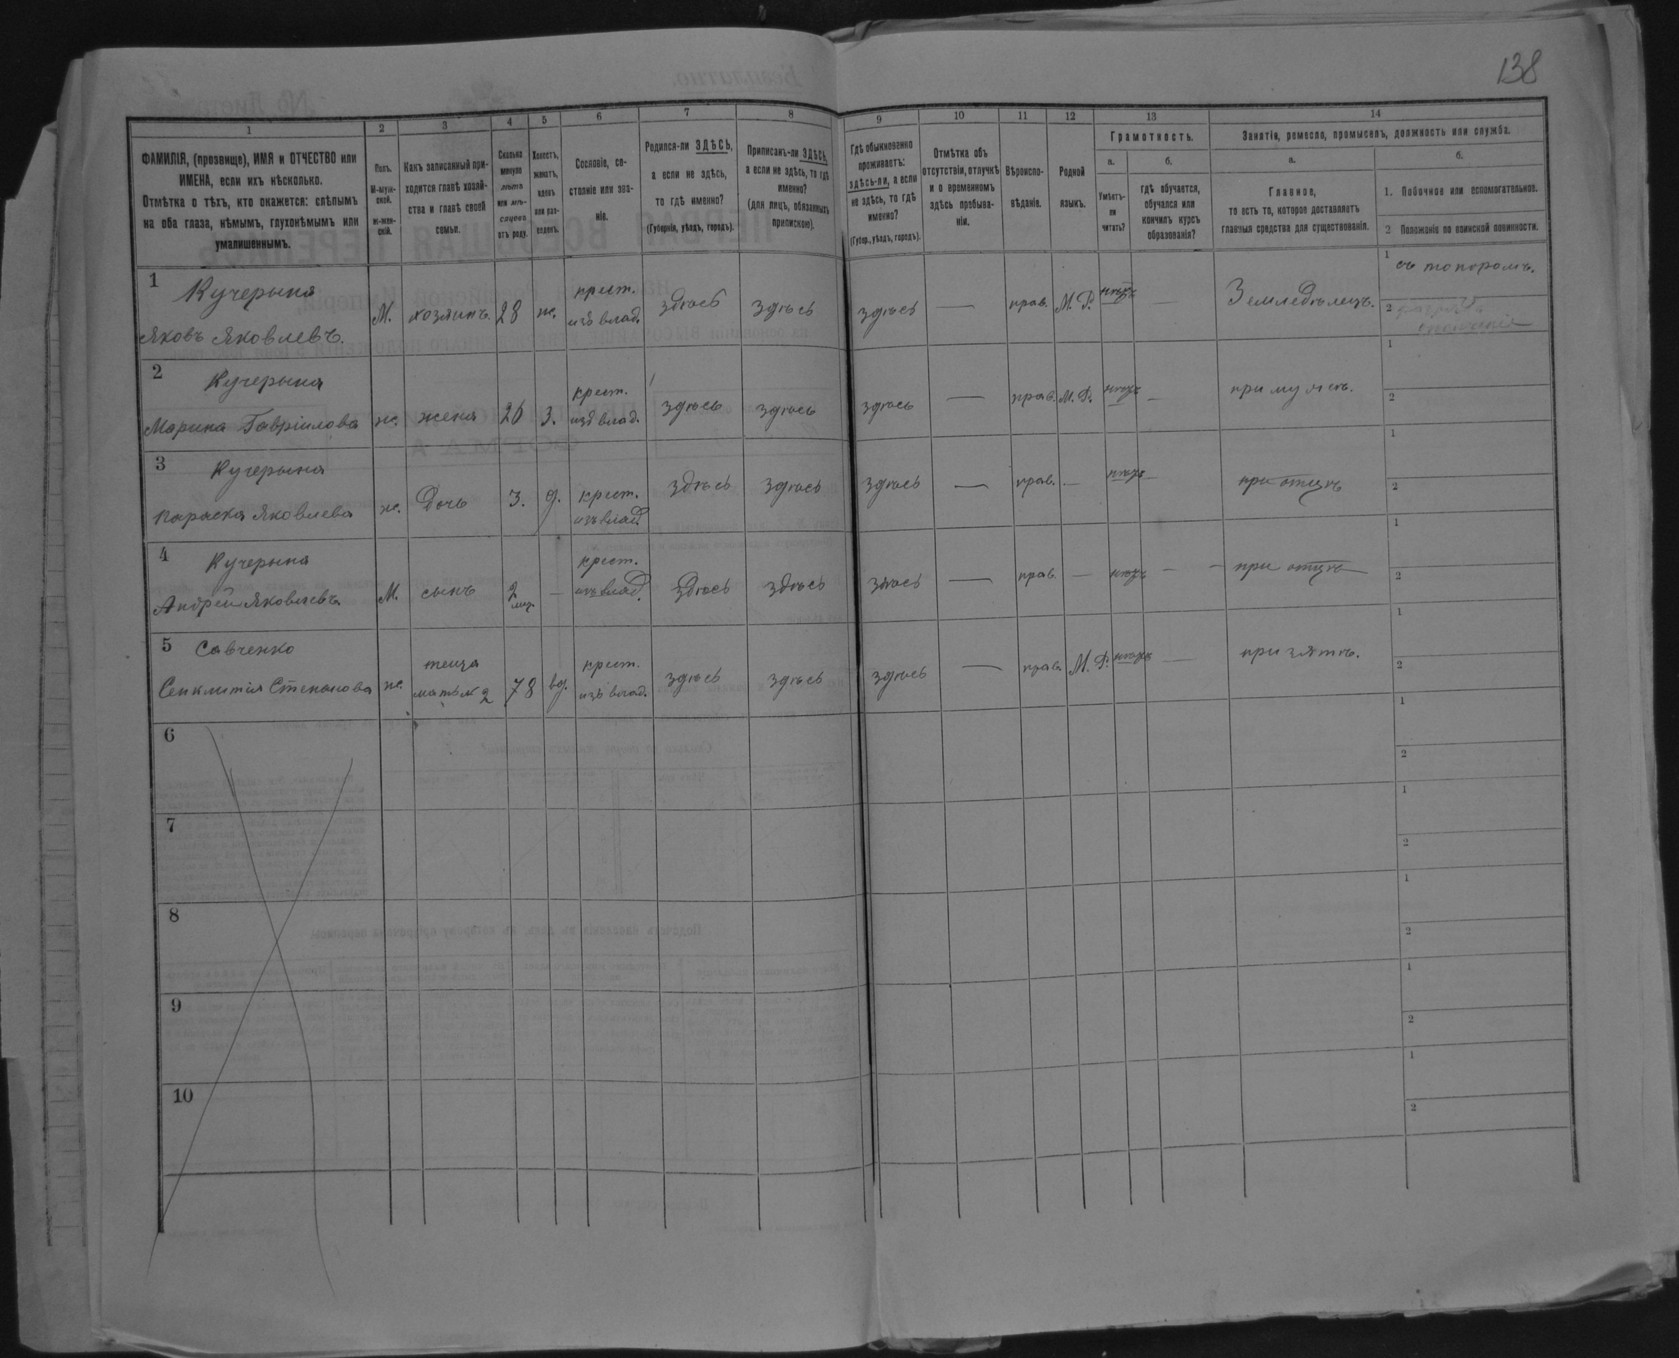 138
1 2 3 4 5 6 7 8 9 10 11 12 13 14
ФАМИЛІЯ, (прозвище), ИМЯ и ОТЧЕСТВО или
ИМЕНА, если ихъ нѣсколько.
Отмѣтка о тѣхъ, кто окажется: слѣпымъ
на оба глаза, нѣмымъ, глухонѣмымъ или
умалишеннымъ.
Полъ.
М-муж-
ской.
ж-жен-
скій.
Какъ записанный при-
ходится главѣ хозяй-
ства и главѣ своей
семьи.
Сколько
минуло
лѣтъ
или мѣ-
сяцевъ
отъ роду.
Холостъ,
женатъ,
вдовъ
или раз-
веденъ.
Сословіе, со-
стояніе или зва-
ніе.
Родился-ли ЗДѢСЬ,
а если не здѣсь,
то гдѣ именно?
(Губернія, уѣздъ, городъ).
Приписанъ-ли ЗДѢСЬ,
а если не здѣсь, то гдѣ
именно?
(для лицъ, обязанныхъ
припискою).
Гдѣ обыкновенно
проживаетъ:
здѣсь-ли, а если
не здѣсь, то гдѣ
именно?
(Губер., уѣздъ, городъ).
Отмѣтка объ
отсутствіи, отлучкѣ
и о временномъ
здѣсь пребыва-
ніи.
Вѣроиспо-
вѣданіе.
Родной
языкъ.
Грамотность.
а.
Умѣетъ-
ли
читать?
б.
гдѣ обучается,
обучался или
кончилъ курсъ
образованія?
Занятіе, ремесло, промыселъ, должность или служба.
а.
Главное,
то есть то, которое доставляетъ
главныя средства для существованія.
б.
1. Побочное или вспомогательное.
2 Положеніе по воинской повинности.
1 Кучерына
Яковъ Яковлевъ. М. хозяинъ. 28 ж. крест.
изъ влад. здѣсь здѣсь здѣсь — прав. М.Р. нѣтъ — Земледѣлецъ. 1 съ топоромъ.
2
2 Кучерына
Марина Гавріилова ж. жена 26 з. крест.
изъ влад. здѣсь здѣсь здѣсь — прав. М.Р. нѣтъ — при мужѣ. 1
2
3 Кучерына
Параска Яковлева ж. Дочь 3. д. крест.
изъ влад. здѣсь здѣсь здѣсь — прав. — нѣтъ — при отцѣ 1
2
4 Кучерына
Андрей Яковлевъ М. сынъ 2
мѣс. — крест.
изъ влад. здѣсь здѣсь здѣсь — прав. — нѣтъ — при отцѣ 1
2
5 Савченко
Сенклитія Степанова ж. теща
мать № 2 78 вд. крест.
изъ влад. здѣсь здѣсь здѣсь — прав. М.Р. нѣтъ — при зятѣ. 1
2
6 1
2
7 1
2
8 1
2
9 1
2
10 1
2